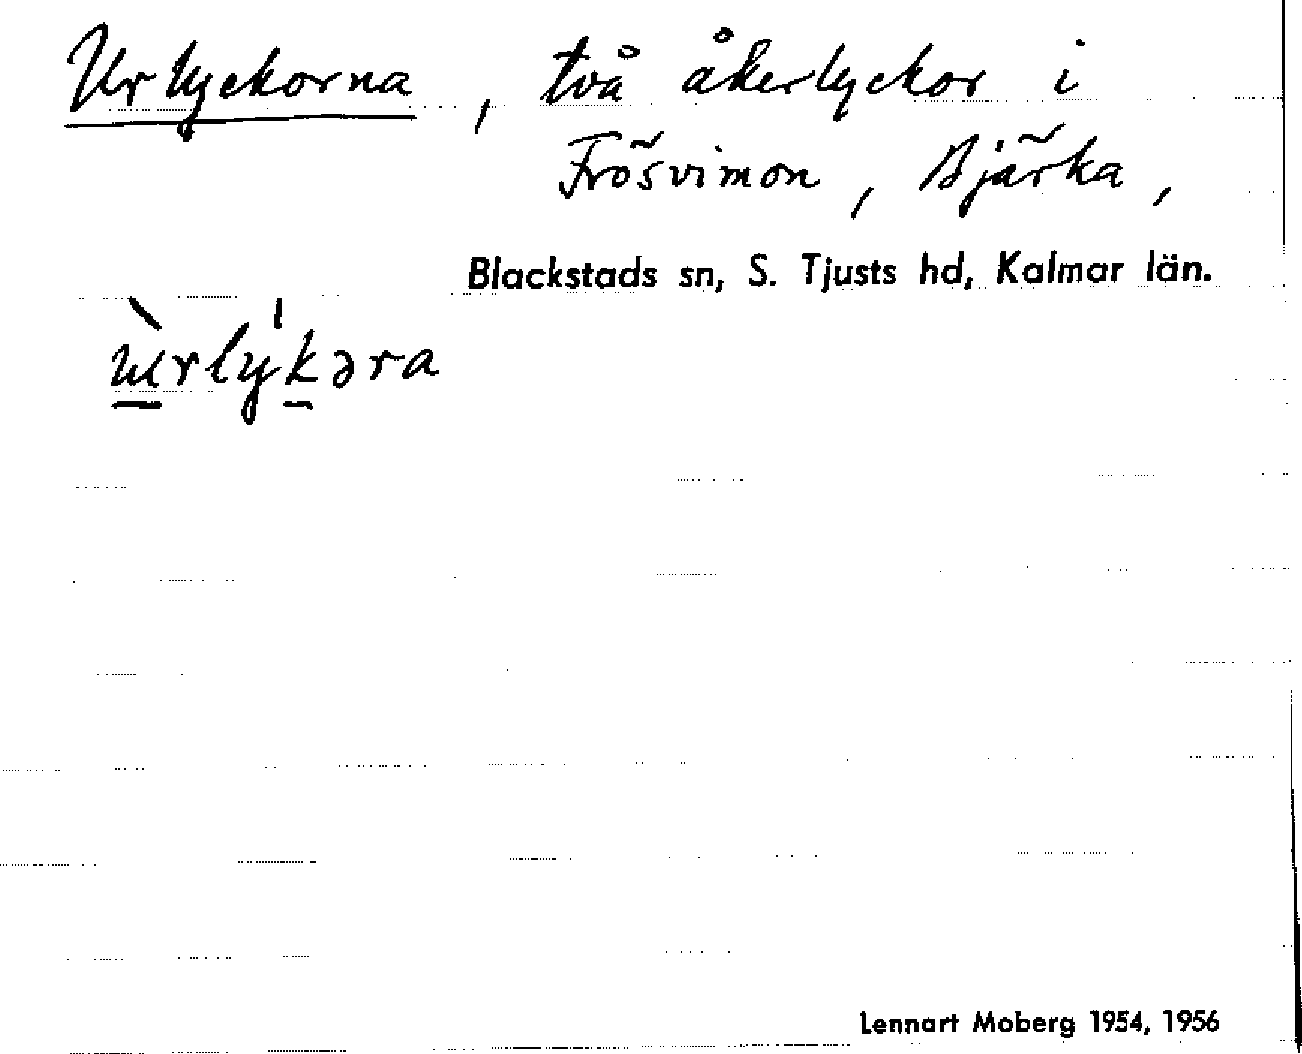 Urlyckorna, två åkerlyckor i
Frösvimon, Bjärka,
Blackstads sn, S. Tjusts hd, Kalmar län.
ɯ̀rlýkəra
Lennart Moberg 1954, 1956